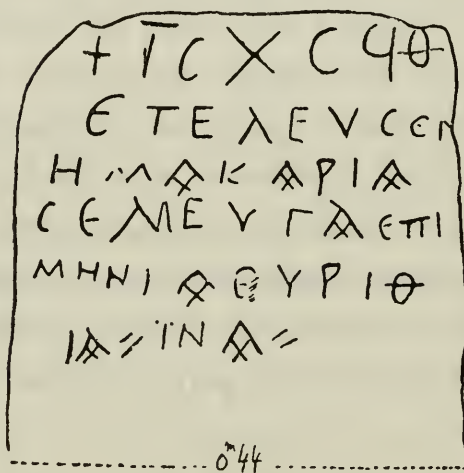 + ΙC ΧC ϤΘ
ΕΤΕΛΕΥCΕΝ
Η ΜΑΚΑΡΙΑ
CΕΜΕΥΓΑ ΕΠΙ
ΜΗΝΙ ΑΘΥΡ ΙΘ
ΙΑ⸗ ΪΝΑ⸗
0ᵐ44